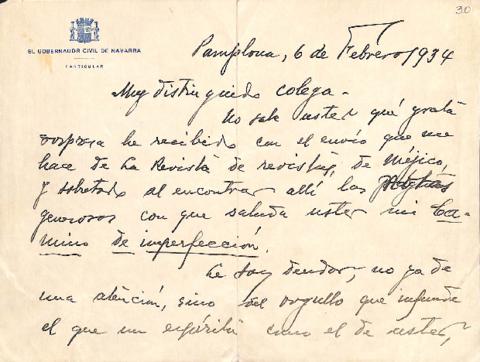 30
EL GOBERNADOR CIVIL DE NAVARRA
PARTICULAR
Pamplona, 6 de Febrero 1934
Muy distinguido colega.
No sabe usted qué grata
sorpresa he recibido con el envío que me
hace de La Revista de revistas, de Méjico,
y sobretodo al encontrar allí las
generosos con que saluda usted mi Ca-
mino de imperfección.
Le soy deudor, no ya de
una atención, sino del orgullo que infunde
el que un espíritu como el de usted,